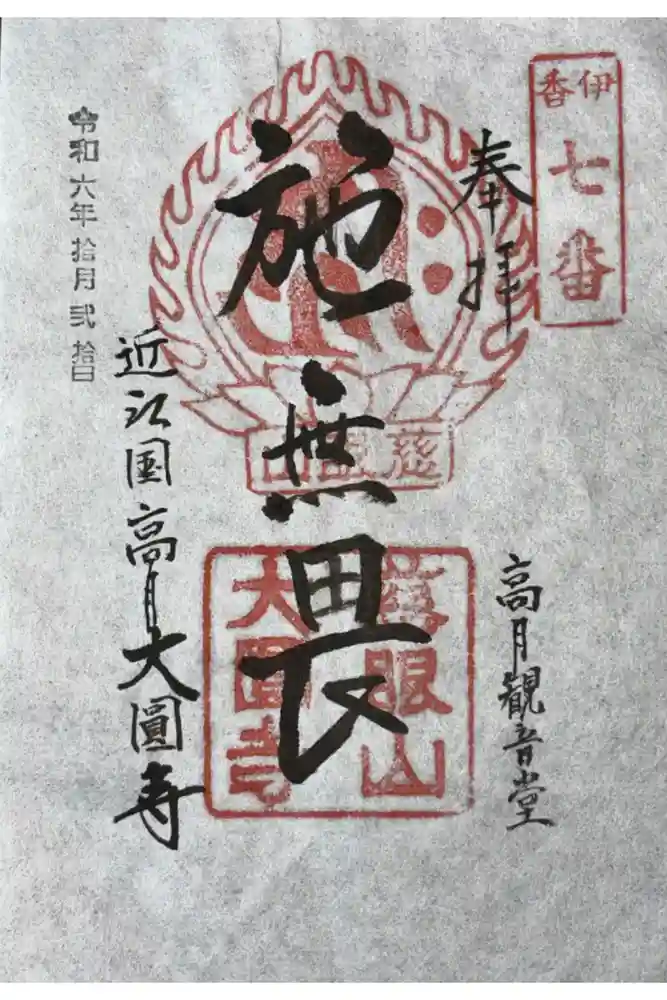 伊香
七番
奉拝
高月観音堂
施無畏
慈眼山
慈眼山
大圓寺
近江国高月大圓寺
令和六年拾月弐拾日